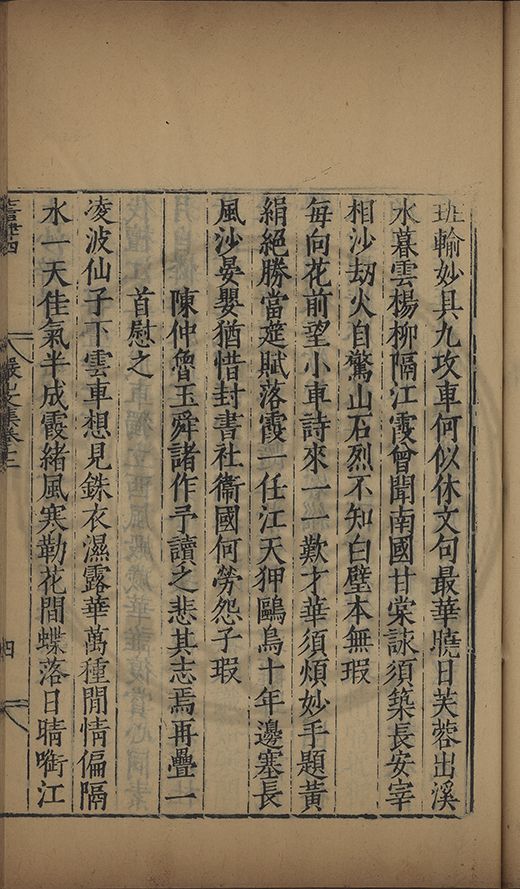 班輸妙具九攻車何似休文句最華曉日芙蓉出溪
水暮雲楊柳隔江霞曾聞南國甘棠詠須築長安宰
相沙劫火自驚山石烈不知白璧本無瑕
每向花前望小車詩來一一歎才華須煩妙手題黃
絹絕勝當筵賦落霞一任江天狎鷗鳥十年邊塞長
風沙晏嬰猶惜封書社衞國何勞怨子瑕
陳仲魯玉舜諸作予讀之悲其志焉再疊一
首慰之
凌波仙子下雲車想見銖衣濕露華萬種閒情偏隔
水一天佳氣半成霞緒風寒勒花間蝶落日晴喻江
四